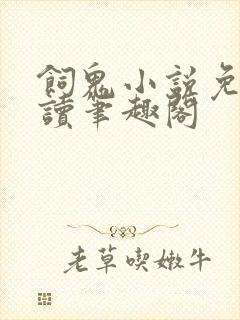 飼鬼小說免
讀筆趣閣
老草喫嫩牛